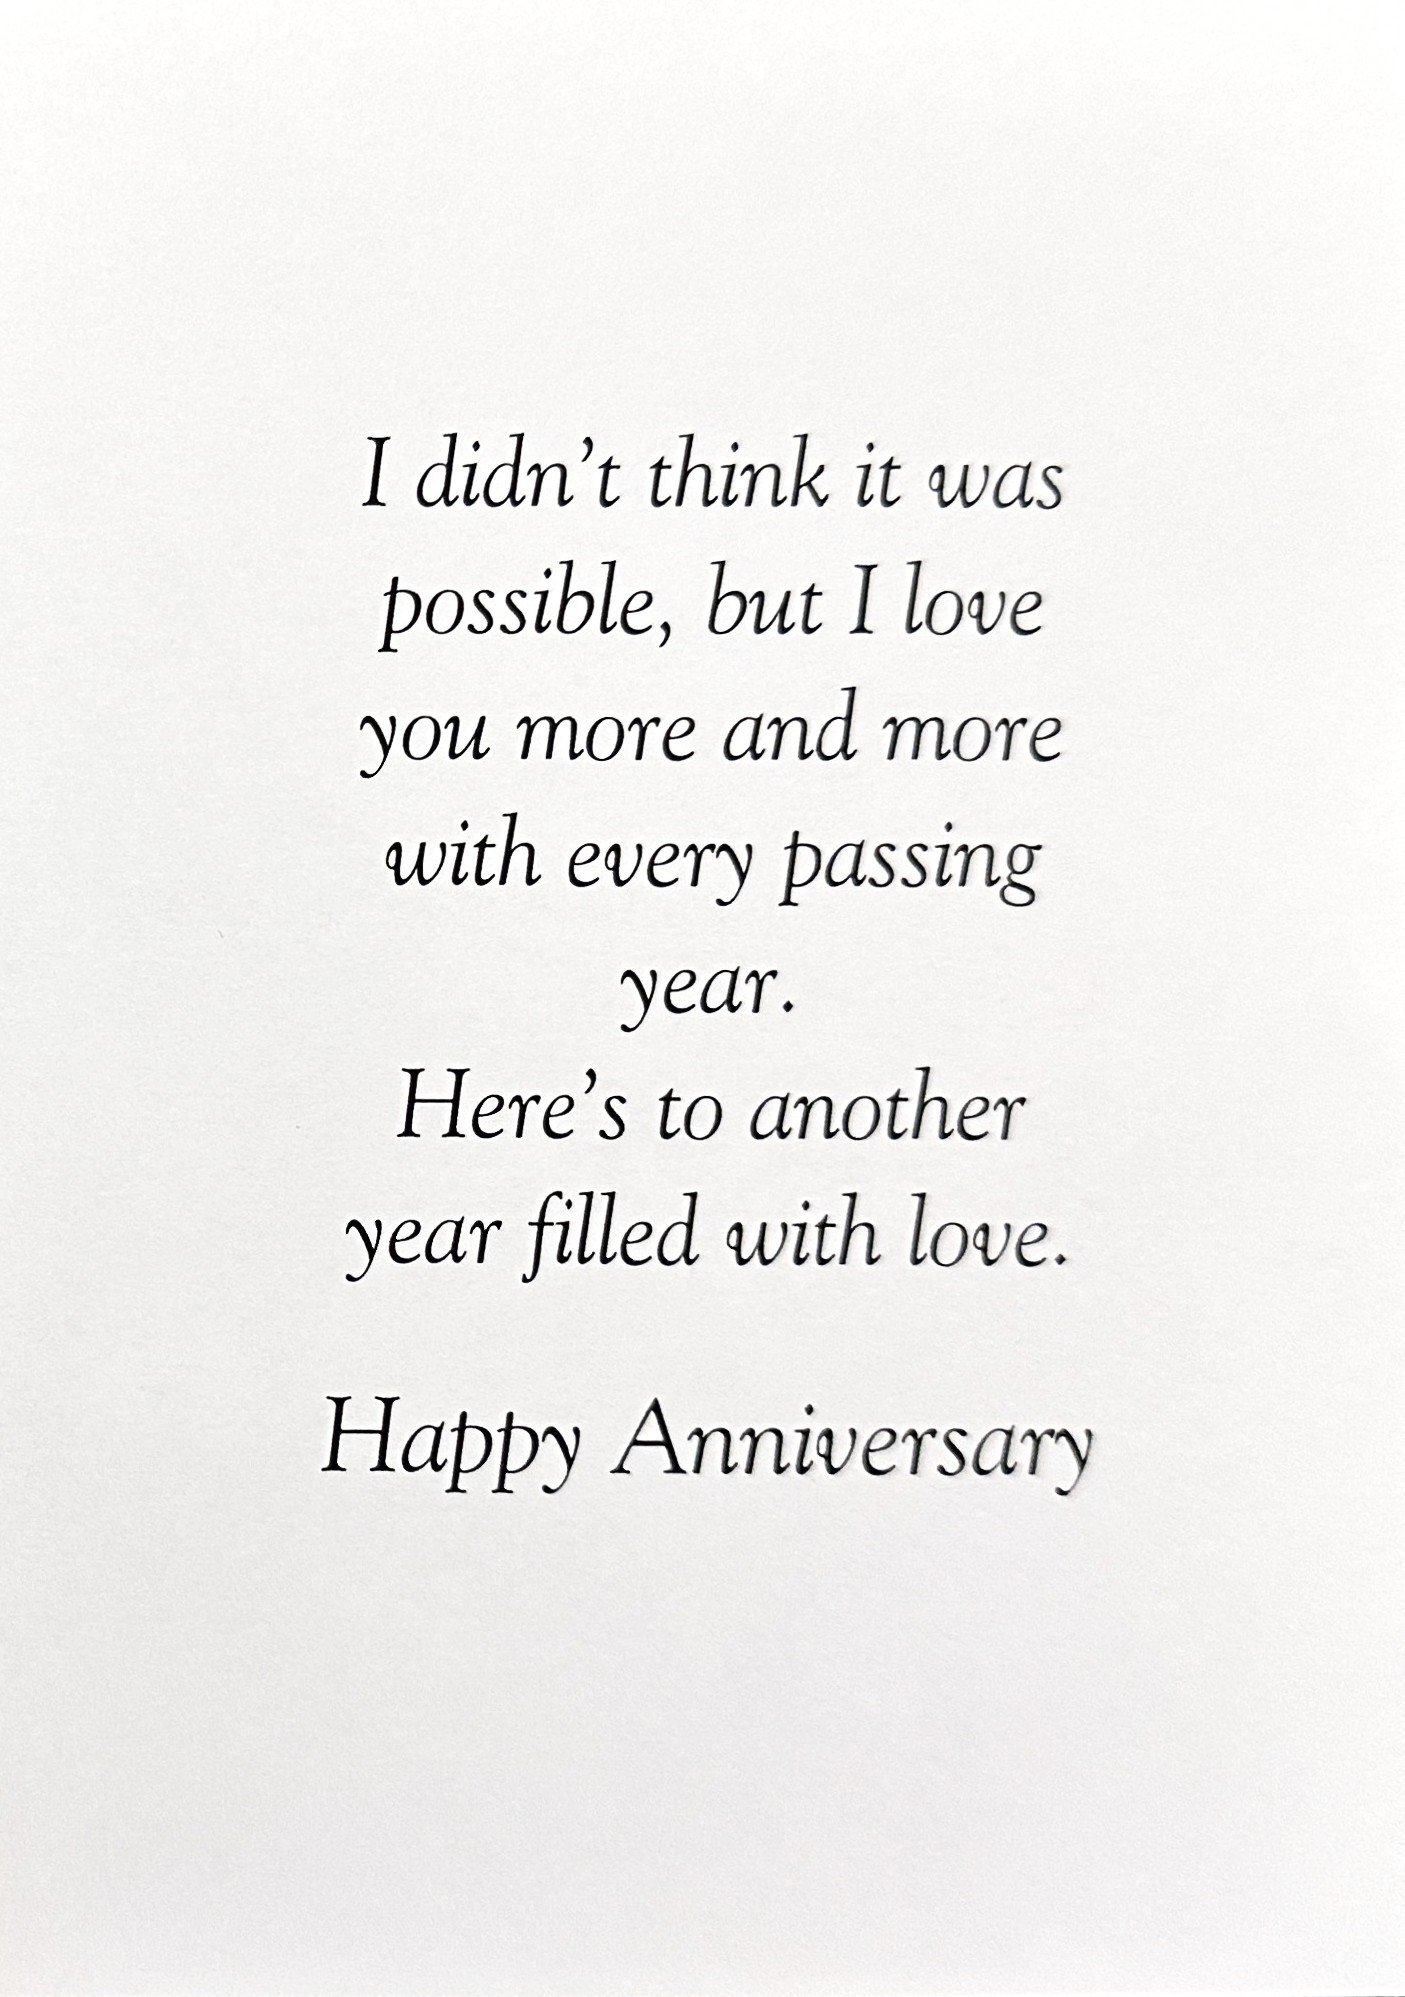 I didn’t think it was
possible, but I love
you more and more
with every passing
year.
Here’s to another
year filled with love.
Happy Anniversary